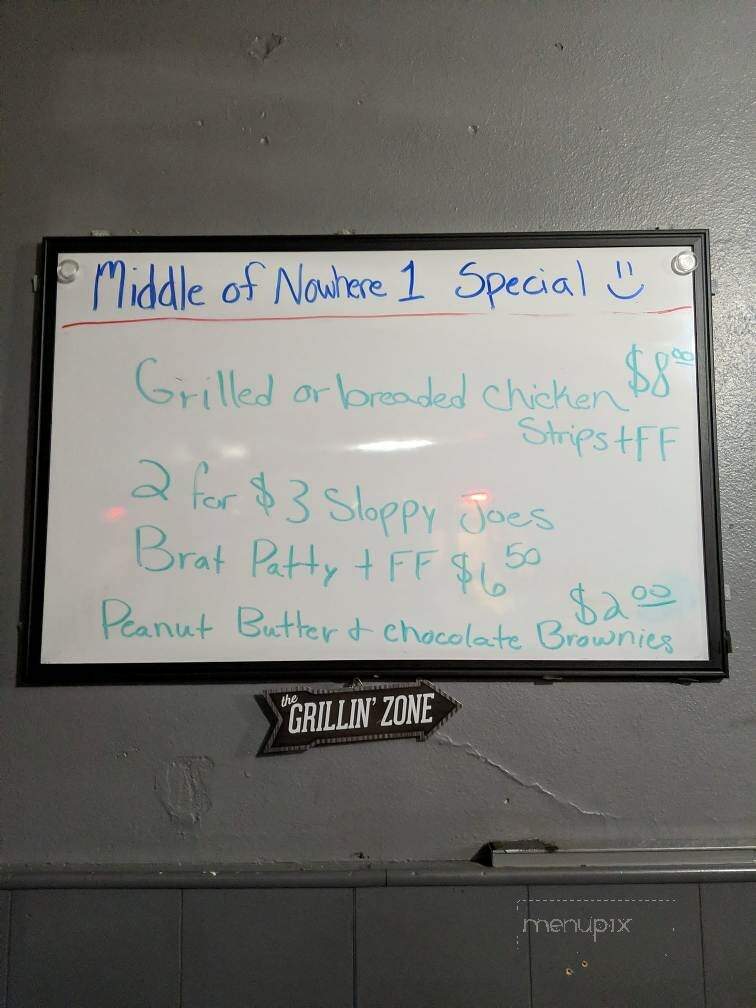 Middle of Nowhere 1 Special
Grilled or breaded chicken $8.00
Strips + FF
2 for $3 Sloppy Joes
Brat Patty + FF $6.50
$2.00
Peanut Butter & chocolate Brownies
the
GRILLIN' ZONE
menupix